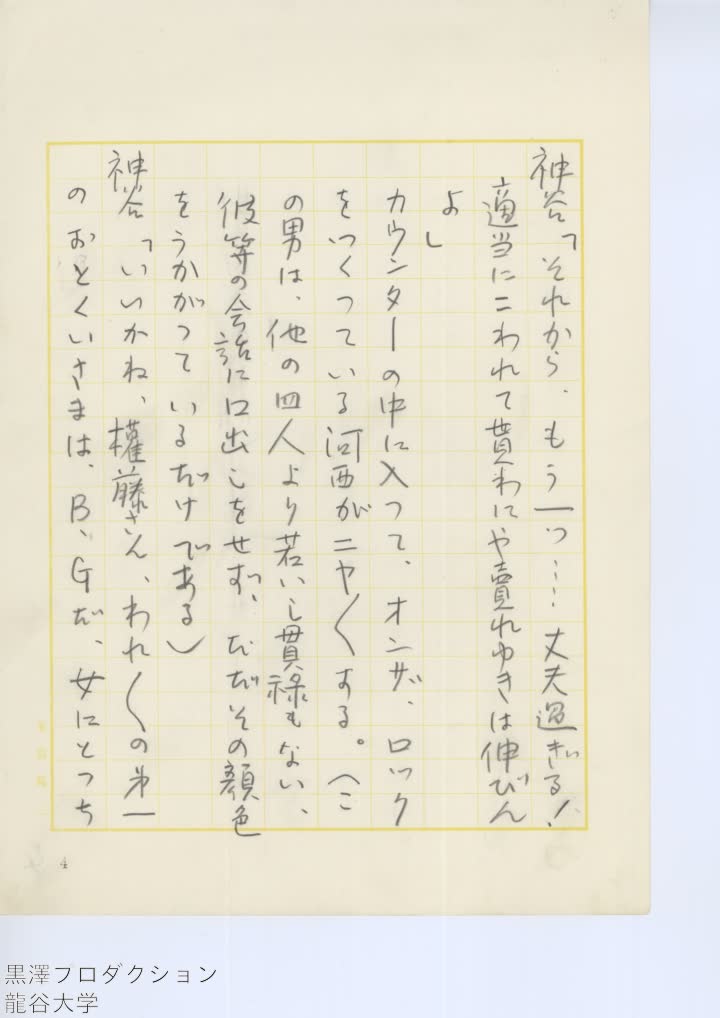 神谷「それから、もう一つ……丈夫過ぎる!
適当にこわれて貰わにや賣れゆきは伸びん
よ」
カウンターの中に入つて、オンザ、ロック
をつくつている河西がニヤ〱する。(こ
の男は、他の四人より若いし貫禄もない、
彼等の会話に口出しをせず、たゞその顔色
をうかがつているだけである)
神谷「いいかね、權藤さん、われ〱の第一
のおとくいさまは、B、Gだ、女にとつち
4
黒澤プロダクション
龍谷大学